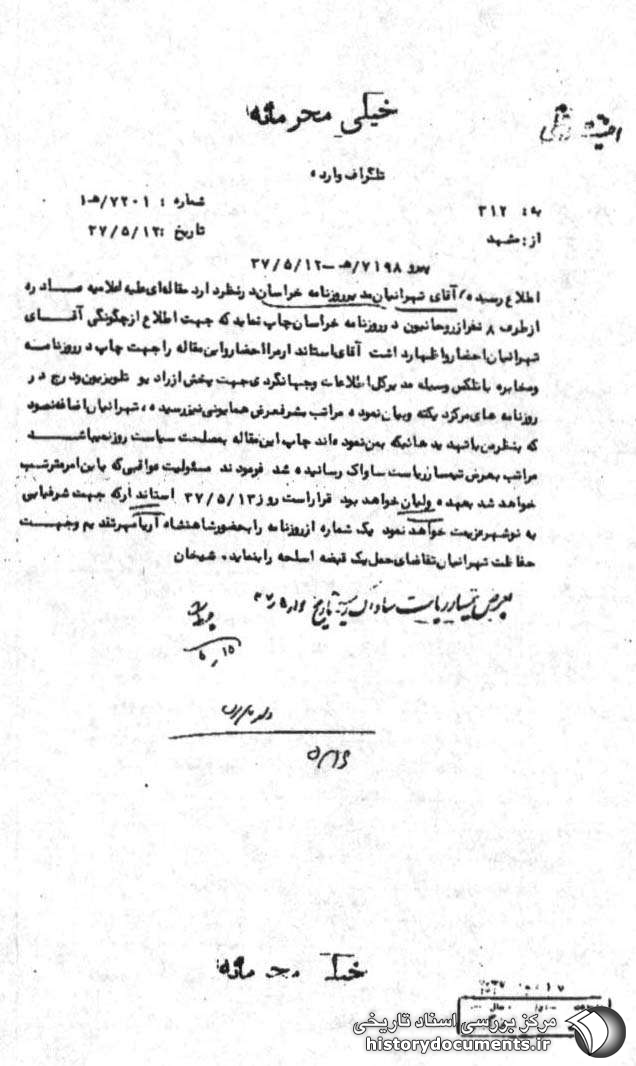 خیلی محرمانه
تلگراف وارده
به : ۳۱۲
شماره : ۷۲۰۱/هـ۱
از : مشهد
تاریخ : ۳۷/۵/۱۲
پیرو ۷۱۹۸/هـ ۱ – ۳۷/۵/۱۲
اطلاع رسیده آقای شهرانیان مدیر روزنامه خراسان در نظر دارد مقاله‌ای علیه اعلامیه صادره
از طرف ۸ نفر از روحانیون در روزنامه خراسان چاپ نماید که جهت اطلاع از چگونگی آقای
شهرانیان احضار و اظهار داشت آقای استاندار مرا احضار و این مقاله را جهت چاپ در روزنامه
و مخابره با تلکس وسیله مدیر کل اطلاعات و جهانگردی جهت پخش از رادیو تلویزیون و درج در
روزنامه های مرکز دیکته و بیان نموده مراتب بشرفعرض همایونی نیز رسیده ، شهرانیان اضافه نمود
که بنظر من باشهیدیهائیکه بمن نموده‌اند چاپ این مقاله بمصلحت سیاست روز نمیباشد
مراتب بعرض تیمسار ریاست ساواک رسانیده شد فرمودند مسئولیت عواقبی که باین امر مترتب
خواهد شد بعهده ولیان خواهد بود قرار است روز ۳۷/۵/۱۳ استاندار که جهت شرفیابی
به نوشهر عزیمت خواهد نمود یک شماره از روزنامه را بحضور شاهنشاه آریامهر تقدیم و جهت
حفاظت شهرانیان تقاضای حمل یک قبضه اسلحه را بنماید . شیخان
بعرض تیمسار ریاست ساواک رسید تاریخ
۵/۱۵
۵/۱۶
خیلی محرمانه
مرکز بررسی اسناد تاریخی
historydocuments.ir